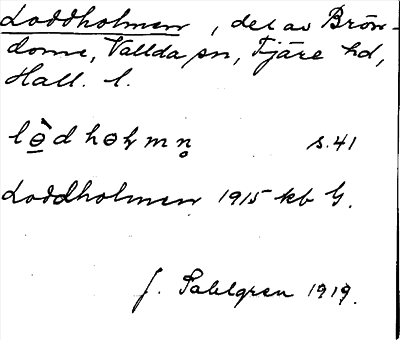 Loddholmen, del av Brön-
dome, Vallda sn, Fjäre hd,
Hall. l.
lɵ̀dhɵɫmn̥ s. 41
Loddholmen 1915 kb G.
J. Sahlgren 1919.